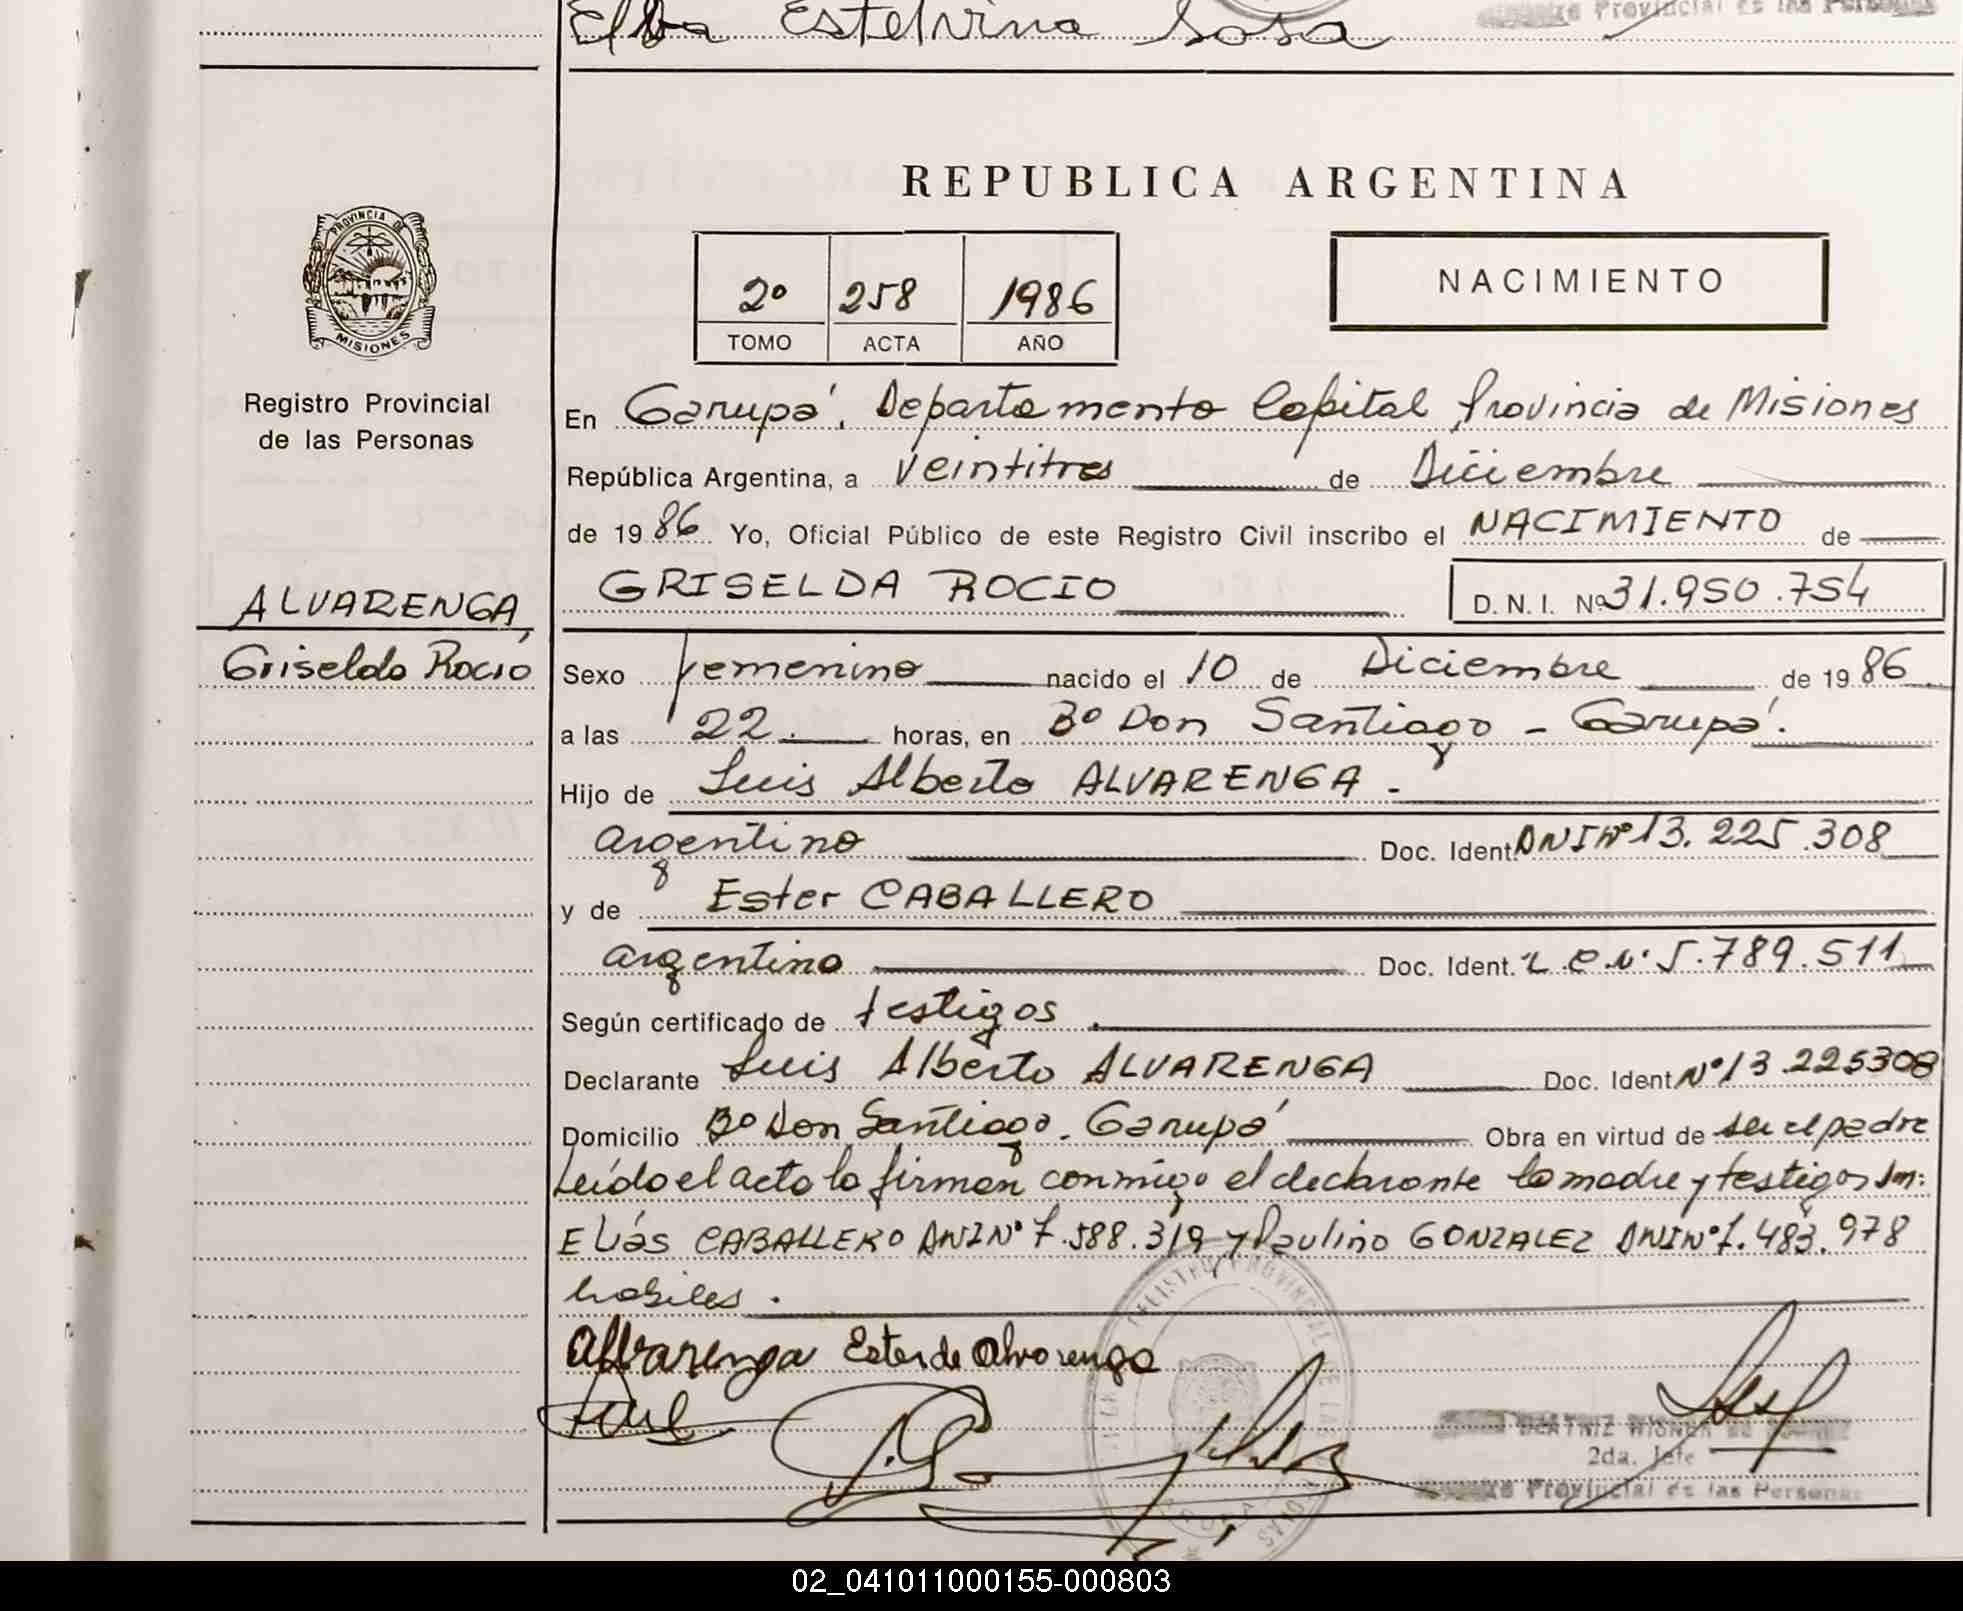 Elba Estelvina Sosa
Provincial de las Personas
REPUBLICA ARGENTINA
PROVINCIA DE
MISIONES
2º 258 1986
TOMO ACTA AÑO
NACIMIENTO
Registro Provincial
de las Personas
En Garupá, Departamento Capital Provincia de Misiones
República Argentina, a veintitres de Diciembre
de 1986 Yo, Oficial Público de este Registro Civil inscribo el NACIMIENTO de
GRISELDA ROCIO D.N.I. Nº 31.950.754
ALVARENGA,
Griselda Rocio
Sexo femenino nacido el 10 de Diciembre de 1986
a las 22. horas, en Bº Don Santiago - Garupá.
Hijo de Luis Alberto ALVARENGA.
argentino Doc. Ident. DNI Nº 13.225.308
y de Ester CABALLERO
argentina Doc. Ident. L.C.Nº 5.789.511
Según certificado de testigos.
Declarante Luis Alberto ALVARENGA Doc. Ident Nº 13.225308
Domicilio Bº Don Santiago. Garupá Obra en virtud de ser el padre
Leído el acta la firman conmigo el declarante la madre y testigos Sm:
Elías CABALLERO DNI Nº 7.588.319 y Paulino GONZALEZ DNI Nº 7.483.978
habiles.
Alvarenga Ester de Alvarenga
REGISTRO PROVINCIAL DE LAS
BEATRIZ
2da. Jefe
Provincial de las Personas
02_041011000155-000803